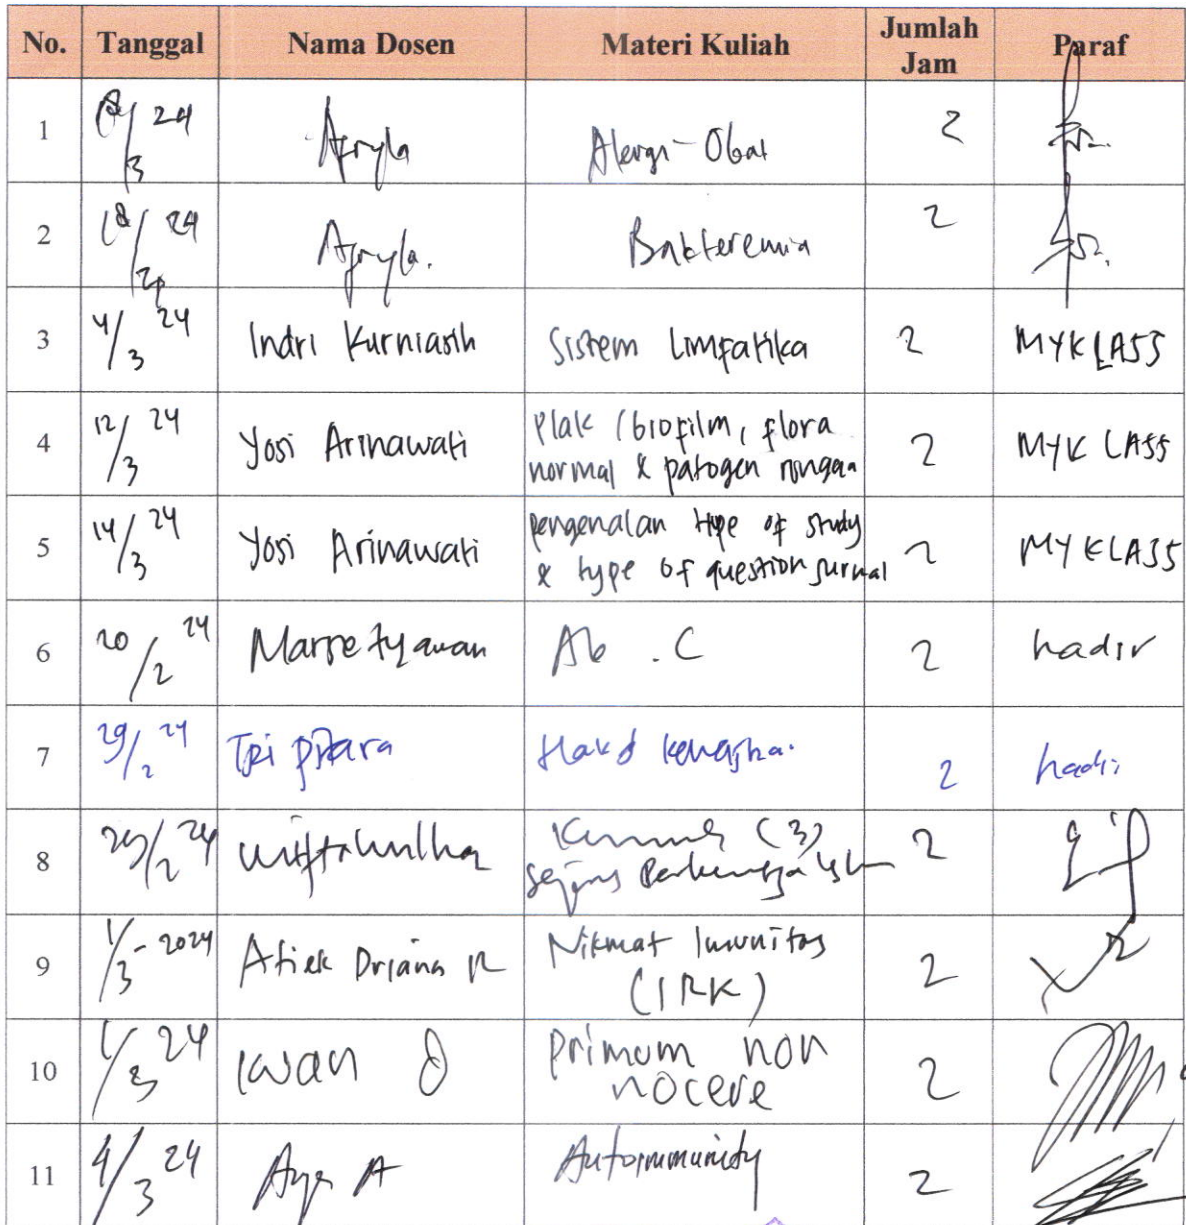 No. Tanggal Nama Dosen Materi Kuliah Jumlah Jam Paraf
1 /3 24 Afryla Alergi - Obat 2
2 18/ 24 Afryla. Bakteremia 2
3 4/3 24 Indri Kurniasih Sistem Limfatika 2 MYKLASS
4 12/3 24 Yosi Arinawati Plak (biofilm, flora
normal & patogen rongga 2 MYKLASS
5 14/3 24 Yosi Arinawati pengenalan type of study
& type of question jurnal 2 MYKLASS
6 20/2 24 Marsetyawan Ab . C 2 hadir
7 29/2 24 Tri 2 hadir
8 29/2 24 (3)
2
9 1/3 - 2024 Atiek Driana R Nikmat Imunitas
(IRK) 2
10 1/3 24 Iwan D primum non
nocere 2
11 4/3 24 A Autoimmunity 2